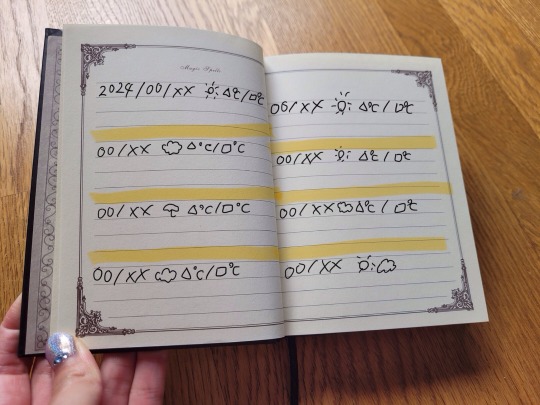 Magic Spells
2024/00/XX ☀ △℃/□℃
00/XX ☁ △℃/□℃
00/XX ☂ △℃/□℃
00/XX ☁ △℃/□℃
06/XX ☀ △℃/□℃
00/XX ☀ △℃/□℃
00/XX ☁ △℃/□℃
00/XX ☀:☁